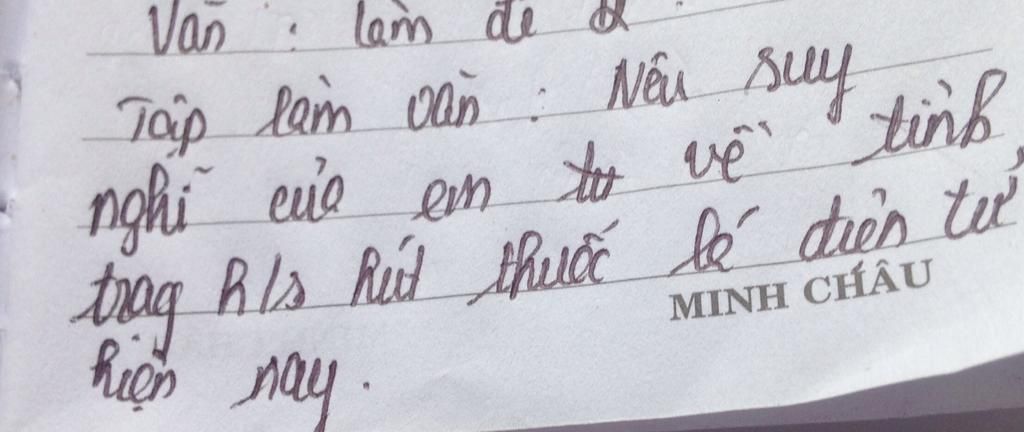 Văn : làm đề
Tập làm văn : Nêu suy
nghĩ của em về tình
trạg h/s hút thuốc lé điện tử
MINH CHÂU
hiện nay.